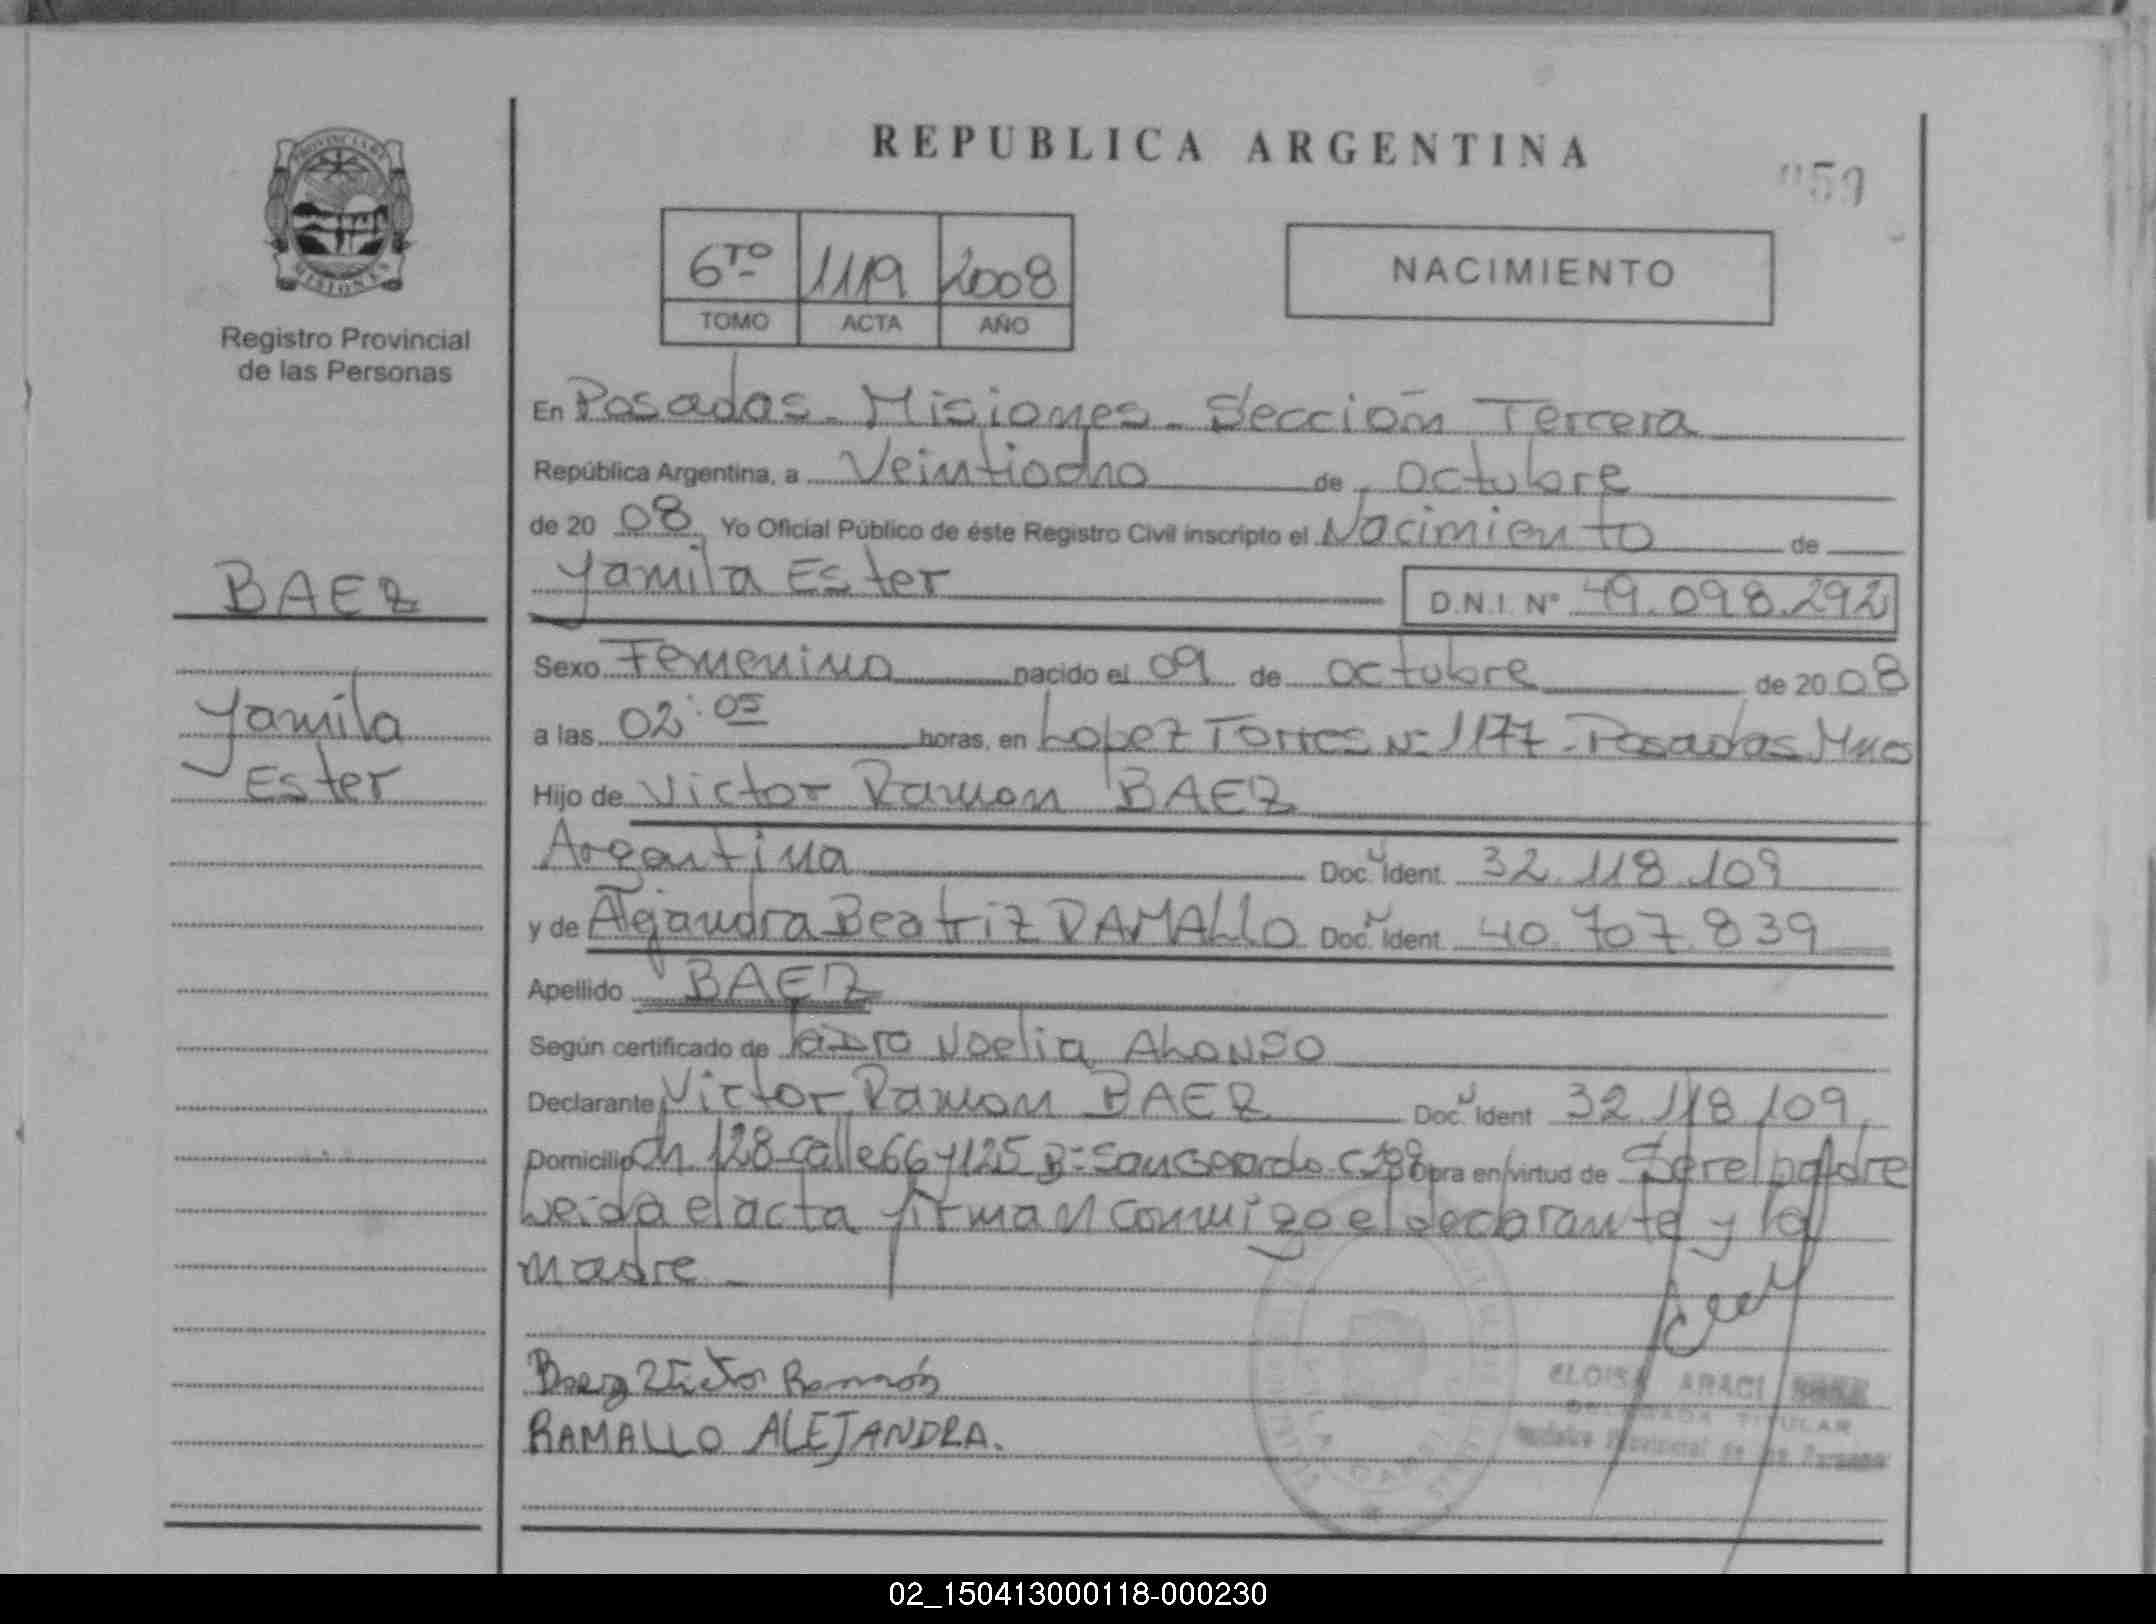 REPUBLICA ARGENTINA
059
PROVINCIA DE
MISIONES
Registro Provincial
de las Personas
6TO 1119 2008
TOMO ACTA AÑO
NACIMIENTO
En Posadas - Misiones - Sección Tercera
República Argentina, a Veintiocho de octubre
de 20 08 Yo Oficial Público de éste Registro Civil inscripto el Nacimiento de
Yamila Ester D.N.I. Nº 49.098.292
BAEZ
Yamila
Ester
Sexo Femenino nacido el 09 de octubre de 20 08
a las 02:05 horas, en Lopez Torres Nº 1177 - Posadas Mnes
Hijo de Victor Ramon BAEZ
Argentina Doc. Ident. 32.118.109
y de Alejandra Beatriz RAMALLO Doc. Ident. 40.707.839
Apellido BAEZ
Según certificado de Noelia ALONSO
Declarante Victor Ramon BAEZ Doc. Ident 32.118.109
Domicilio Ch 128 calle 66 y 125 Bº San Gerardo obra en virtud de Ser el padre
Leida el acta firman conmigo el declarante y la
madre -
Baez Victor Ramón
RAMALLO ALEJANDRA.
ELOISA ARACI
DELEGADA TITULAR
Provincial de las Personas
02_150413000118-000230